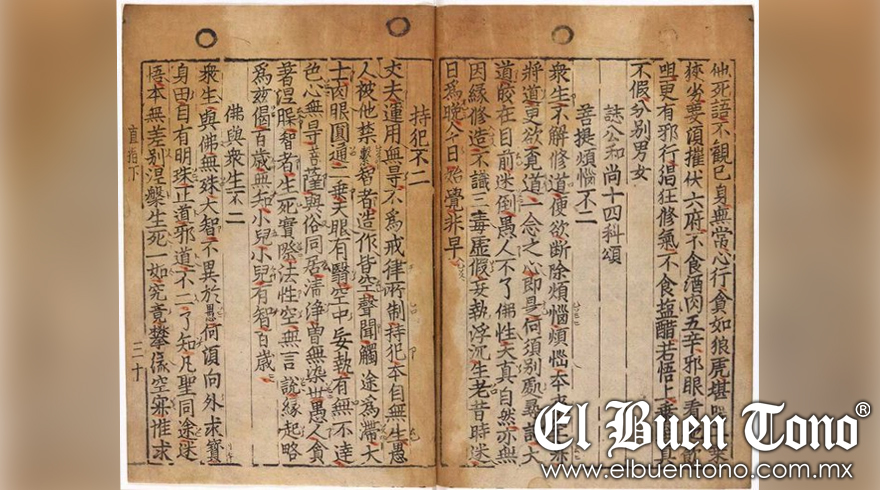 他死語不觀巳身無常心行貪如狼虎堪
狹劣要須摧伏六府不食酒肉五辛邪眼看
咀更有邪行猖狂修氣不食盬醋若悟上乘
不假分別男女
誌公和尚十四科頌
菩提煩惱不二
衆生不解修道便欲斷除煩惱煩惱本
將道更欲覓道一念之心即是何須別處尋討大
道皎在目前迷倒愚人不了佛性天真自然亦無
因緣修造不識三毒虛假妄執浮沉生老昔時迷
日爲晚今日始覺非早
持犯不二
丈夫運用無㝵不爲戒律所制持犯本自無生愚
人被他禁繫智者造作皆空聲聞觸途爲滯大
士肉眼圓通二乘天眼有翳空中妄執有無不達
色心無㝵菩薩與俗同居清淨曾無染世愚人貪
著涅槃智者生死實際法性空無言說緣起略
爲玆偈百歲無知小兒小兒有智百歲
佛與衆生不二
衆生與佛無殊大智不異於愚何須向外求寶
身田自有明珠正道邪道不二了知凡聖同途迷
悟本無差別涅槃生死一如究竟攀緣空寂惟求
直指下
三十
El Buen Tono®
www.elbuentono.com.mx